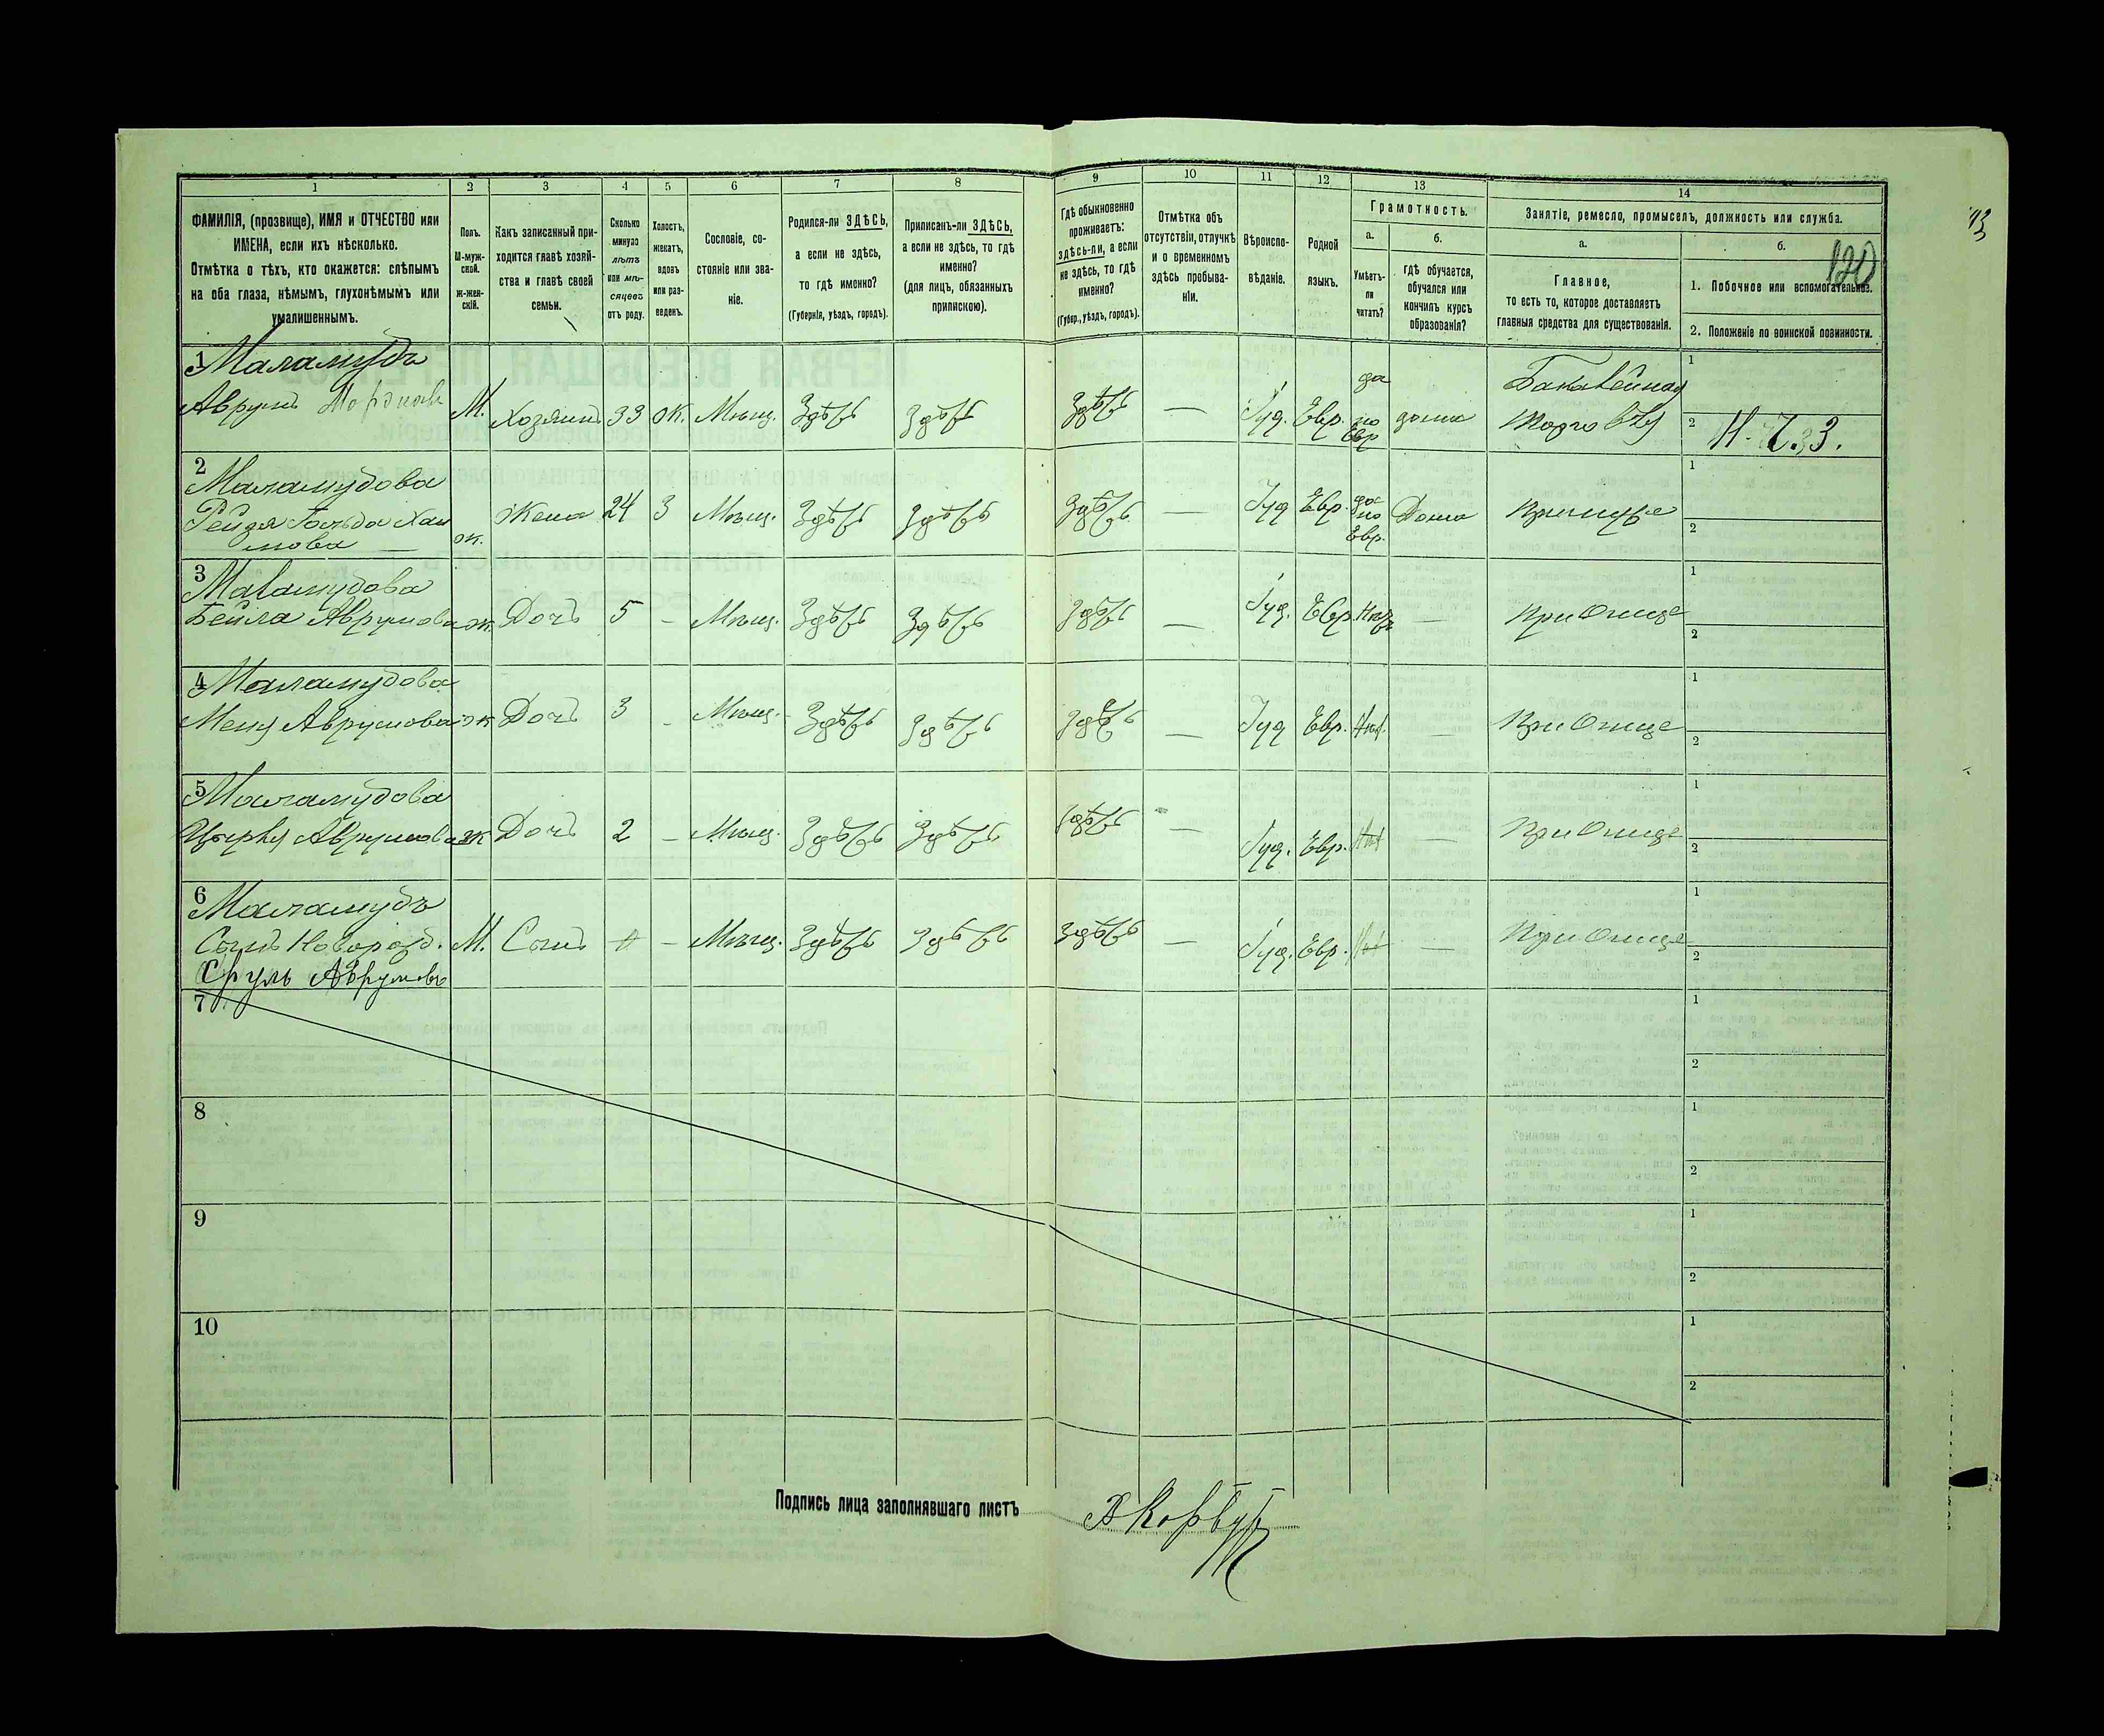 1
2
3
4
5
6
7
8
9
10
11
12
13
14
ФАМИЛІЯ, (прозвище), ИМЯ и ОТЧЕСТВО или
ИМЕНА, если ихъ нѣсколько.
Отмѣтка о тѣхъ, кто окажется: слѣпымъ
на оба глаза, нѣмымъ, глухонѣмымъ или
умалишеннымъ.
Полъ.
М-муж-
ской.
Ж-жен-
скій.
Какъ записанный при-
ходится главѣ хозяй-
ства и главѣ своей
семьи.
Сколько
минуло
лѣтъ
или мѣ-
сяцевъ
отъ роду.
Холостъ,
женатъ,
вдовъ
или раз-
веденъ.
Сословіе, со-
стояніе или зва-
ніе.
Родился-ли ЗДѢСЬ,
а если не здѣсь,
то гдѣ именно?
(Губернія, уѣздъ, городъ).
Приписанъ-ли ЗДѢСЬ,
а если не здѣсь, то гдѣ
именно?
(для лицъ, обязанныхъ
припискою).
Гдѣ обыкновенно
проживаетъ:
здѣсь-ли, а если
не здѣсь, то гдѣ
именно?
(Губер., уѣздъ, городъ).
Отмѣтка объ
отсутствіи, отлучкѣ
и о временномъ
здѣсь пребыва-
ніи.
Вѣроиспо-
вѣданіе.
Родной
языкъ.
Грамотность.
а.
Умѣетъ-
ли
читать?
б.
гдѣ обучается,
обучался или
кончилъ курсъ
образованія?
Занятіе, ремесло, промыселъ, должность или служба.
а.
Главное,
то есть то, которое доставляетъ
главныя средства для существованія.
б.
120
1. Побочное или вспомогательное.
2. Положеніе по воинской повинности.
1 Маламудъ
Аврумъ Мордковъ М. Хозяинъ 33 Ж. Мѣщ. Здѣсь Здѣсь Здѣсь — Іуд. Евр. да по Евр дома Бакалейная торговля
1
2 Н. Ч. 3.
2 Маламудова
Рейзя Гольда Хаи
мова — ж. Жена 24 З Мѣщ. Здѣсь Здѣсь Здѣсь — Іуд Евр. да по Евр. Дома При мужѣ
1
2
3 Маламудова
Бейла Аврумова ж. Дочь 5 – Мѣщ. Здѣсь Здѣсь Здѣсь — Іуд. Евр. Нѣтъ — При Отце
1
2
4 Маламудова
Меня Аврумова ж Дочь 3 – Мѣщ. Здѣсь Здѣсь Здѣсь — Іуд Евр. Нѣт. — При Отце
1
2
5 Маламудова
Аврумова ж Дочь 2 – Мѣщ. Здѣсь Здѣсь Здѣсь — Іуд. Евр. Нѣт — При Отце
1
2
6 Маламудъ
Сынъ Новорожд. М. Сынъ – Мѣщ. Здѣсь Здѣсь Здѣсь — Іуд. Евр. Нѣт — При Отце
Сруль Аврумовъ
1
2
7
1
2
8
1
2
9
1
2
10
1
2
Подпись лица заполнявшаго листъ